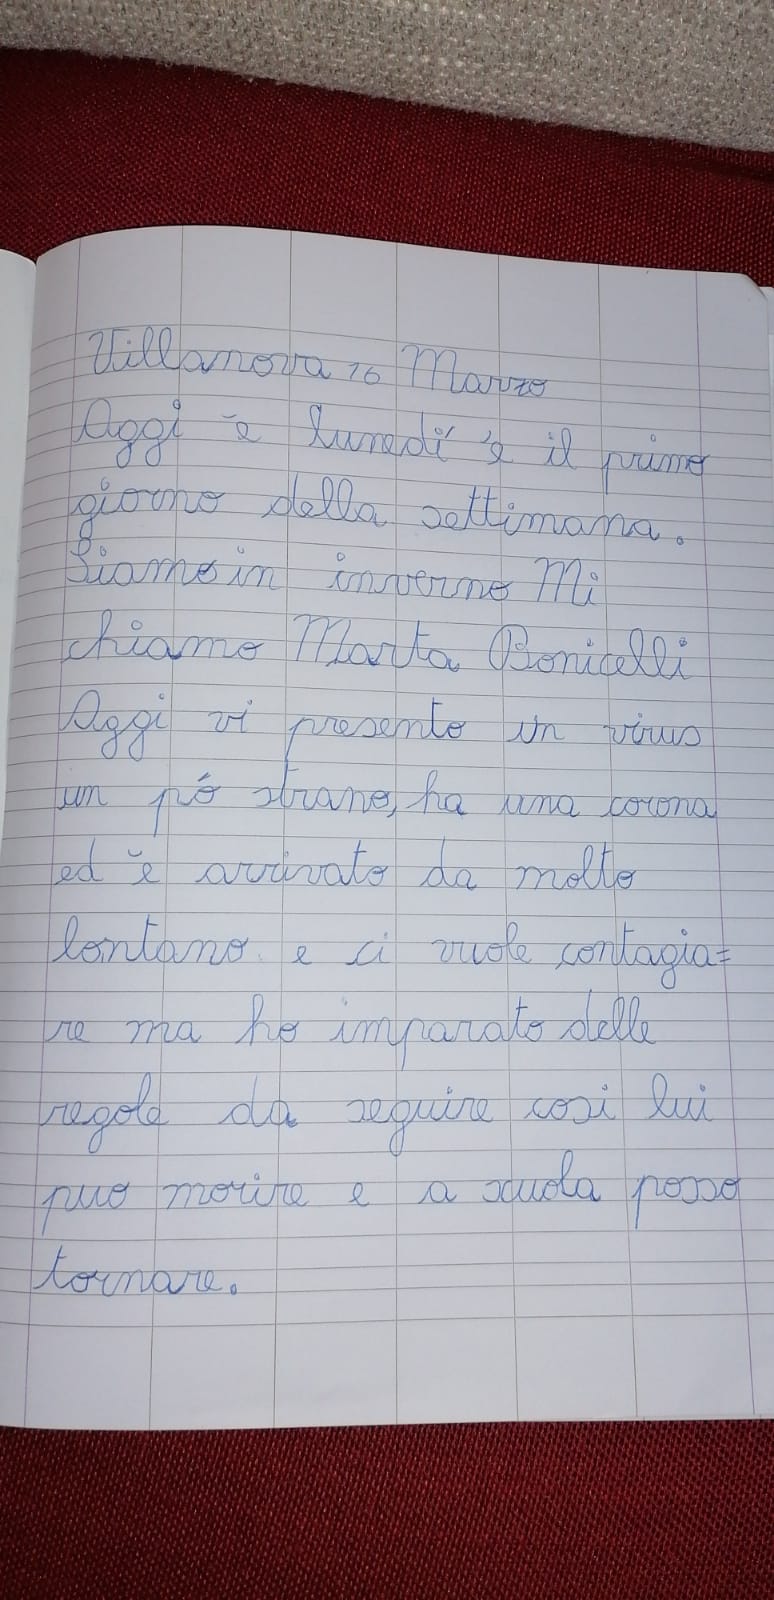 Villanova 16 Marzo
Oggi è lunedì è il primo
giorno della settimana.
Siamo in inverno Mi
chiamo Marta Bonicelli
Oggi vi presento un virus
un pó strano, ha una corona
ed è arrivato da molto
lontano e ci vuole contagia=
re ma ho imparato delle
regole da seguire cosi lui
puo morire e a scuola posso
tornare.